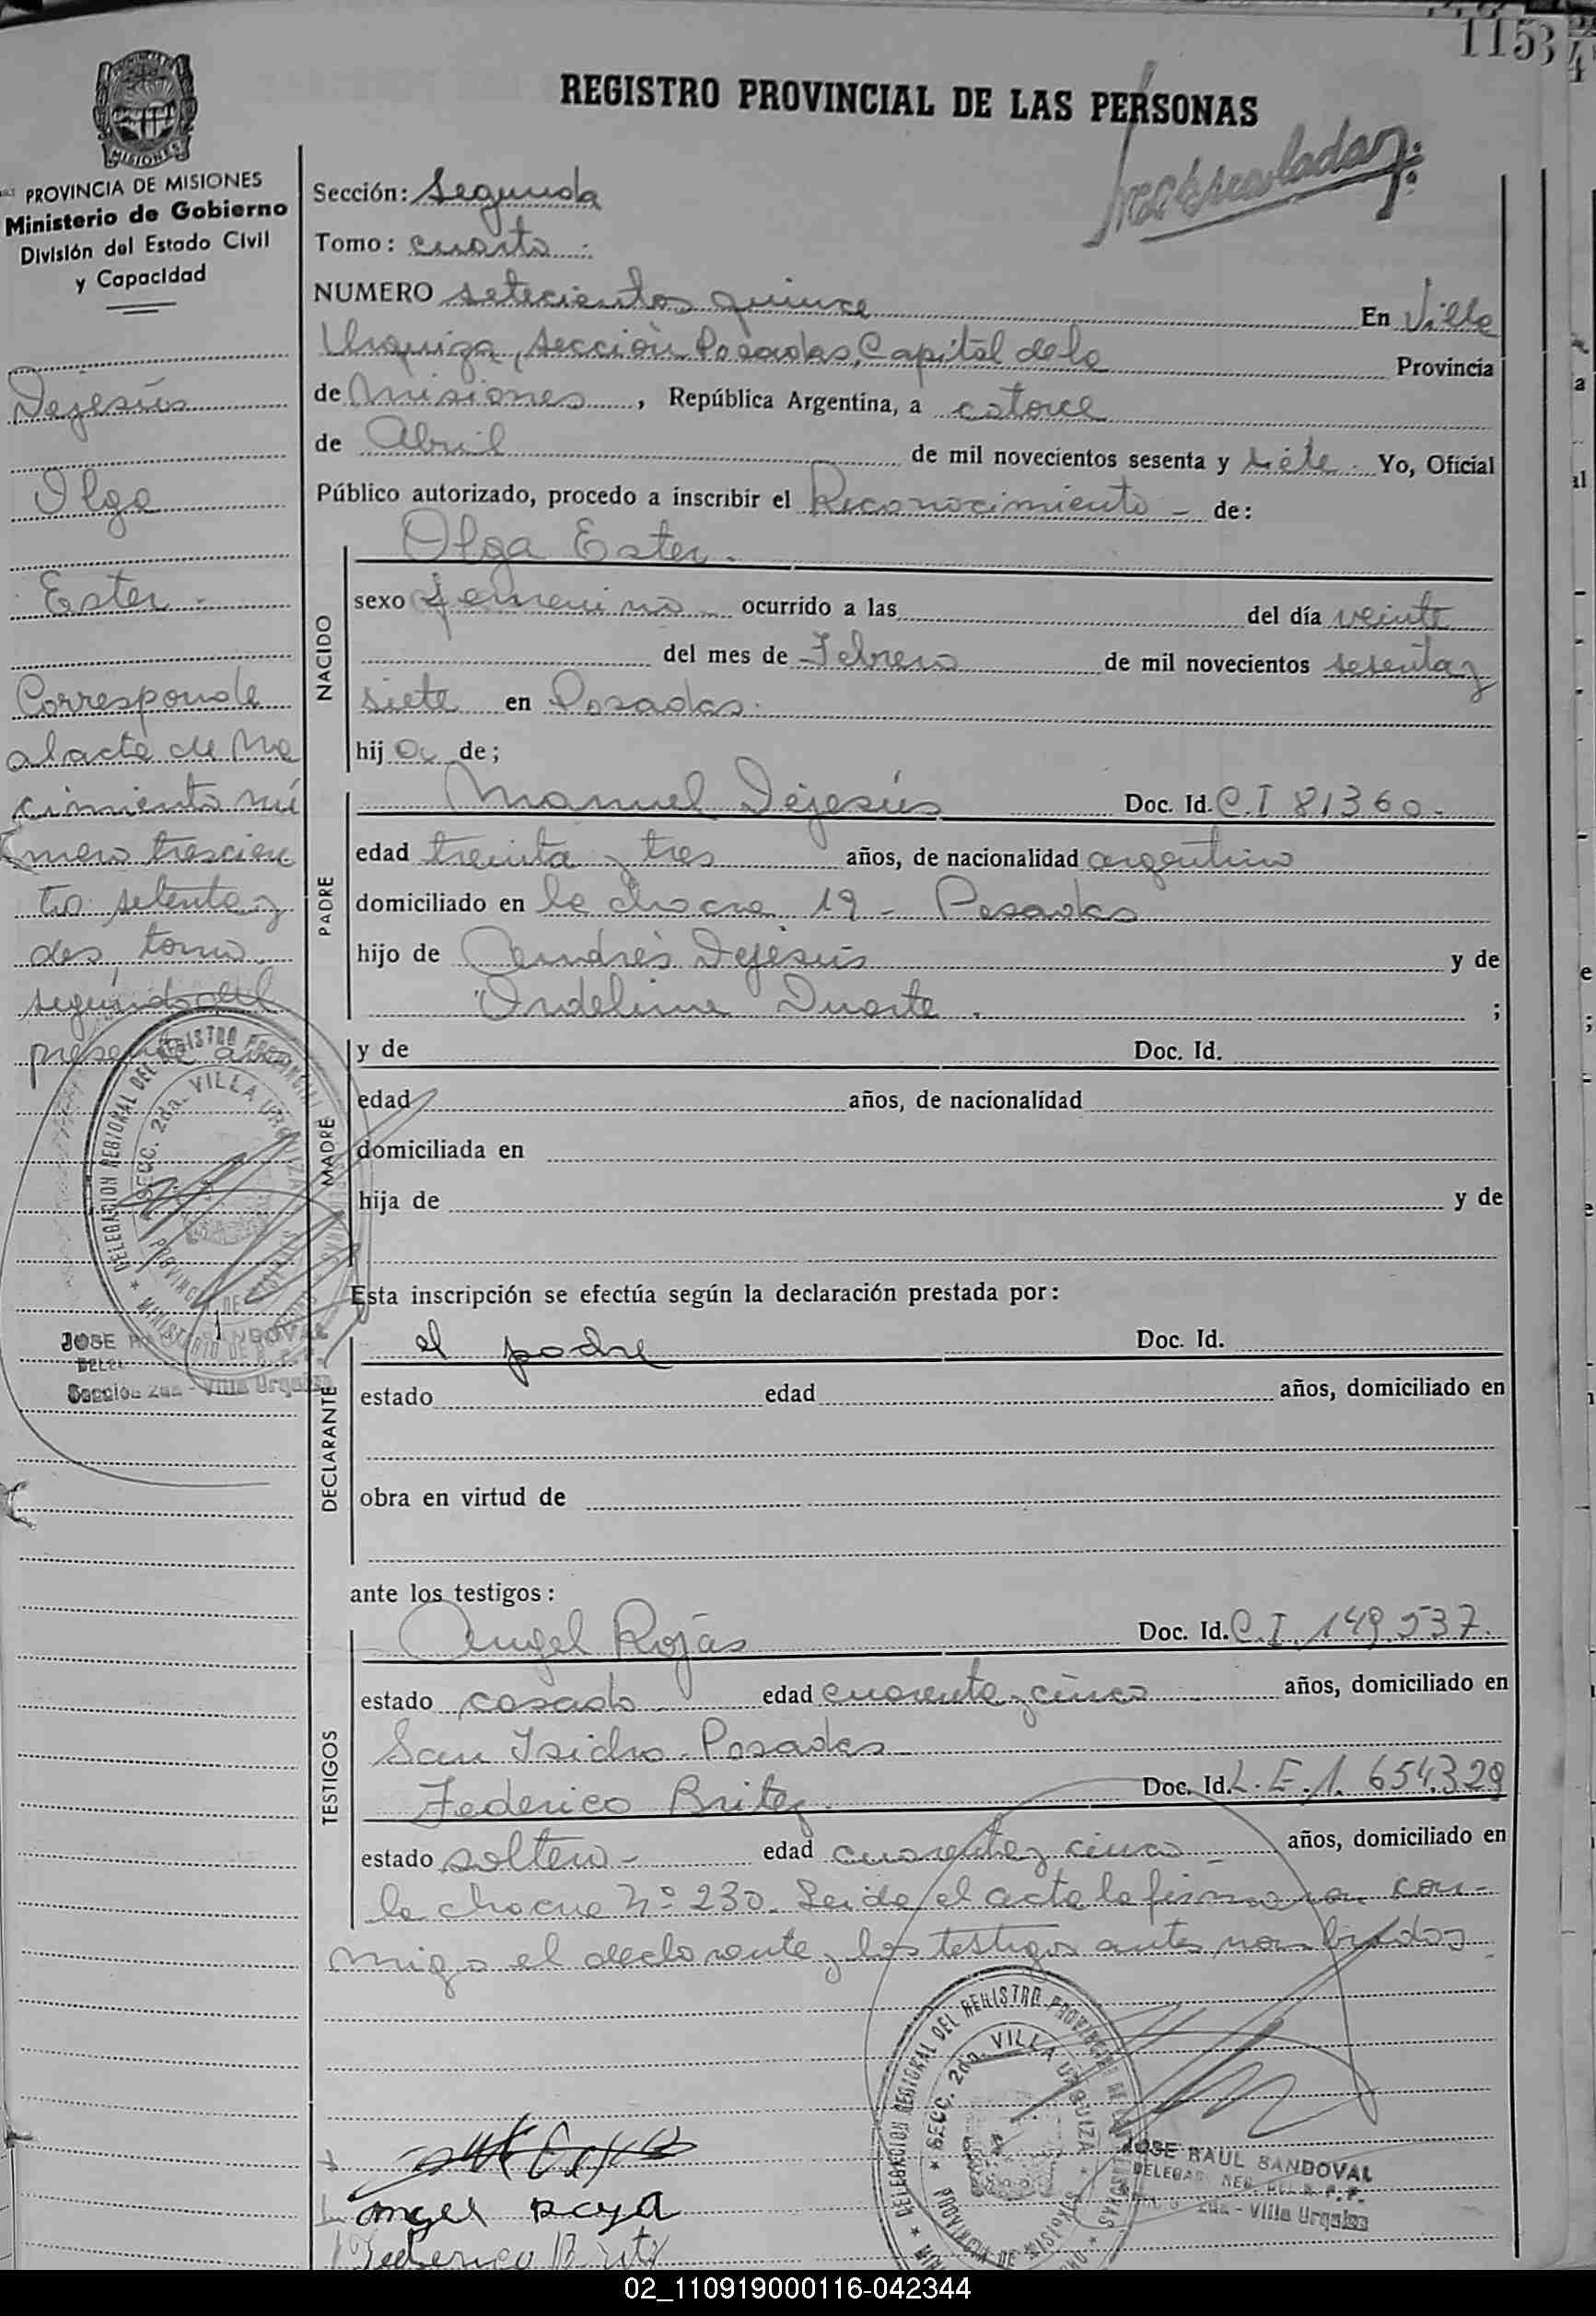 1153
REGISTRO PROVINCIAL DE LAS PERSONAS
MISIONES
PROVINCIA DE MISIONES
Ministerio de Gobierno
División del Estado Civil
y Capacidad
Dejesús
Olga
Ester -
Corresponde
al acta de Na
cimiento nú
mero trescien
tos setenta y
dos, tomo
segundo del
presente
DELEGACION REGIONAL DEL REGISTRO PROVINCIAL
SECC. 2da. VILLA URQUIZA
JOSE
Sección 2da - Villa Urquiza
Sección: Segunda
Tomo: cuarto
NUMERO setecientos quince En Villa
Urquiza, sección Posadas, Capital de la Provincia
de Misiones, República Argentina, a catorce
de Abril de mil novecientos sesenta y siete. Yo, Oficial
Público autorizado, procedo a inscribir el Reconocimiento - de:
NACIDO
Olga Ester.
sexo femenino ocurrido a las del día veinte
del mes de Febrero de mil novecientos sesenta y
siete en Posadas.
hija de;
PADRE
Manuel Dejesús Doc. Id. C.I 81360.
edad treinta y tres años, de nacionalidad argentino
domiciliado en la chacra 19 - Posadas
hijo de Andrés Dejesús y de
Duarte. ;
MADRE
y de Doc. Id.
edad años, de nacionalidad
domiciliada en
hija de y de
Esta inscripción se efectúa según la declaración prestada por:
DECLARANTE
el padre Doc. Id.
estado edad años, domiciliado en
obra en virtud de
ante los testigos:
TESTIGOS
Angel Rojas Doc. Id. C.I. 149.537.
estado casado edad cuarenta y cinco años, domiciliado en
San Isidro - Posadas
Federico Britez. Doc. Id. L.E. 1.654.329
estado soltero - edad cuarenta y cinco - años, domiciliado en
la chacra Nº 230. Leida el acta la firmaron con-
migo el declarante y los testigos antes nombrados
DELEGACION REGIONAL DEL REGISTRO PROVINCIAL DE LAS PERSONAS
SECC. 2da. VILLA URQUIZA
PROVINCIA DE MISIONES
JOSE RAUL SANDOVAL
2da - Villa Urquiza
angel
02_110919000116-042344